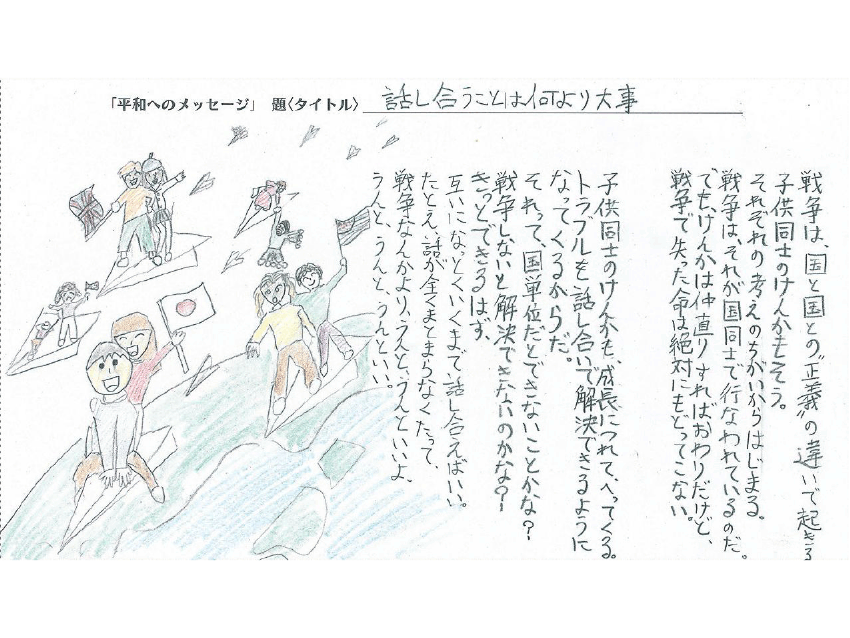 「平和へのメッセージ」 題〈タイトル〉 話し合うことは何より大事
戦争は、国と国との“正義”の違いで起きる
子供同士のけんかもそう。
それぞれの考えのちがいからはじまる。
戦争は、それが国同士で行なわれているのだ。
でも、けんかは仲直りすればおわりだけど、
戦争で失った命は絶対にもどってこない。
子供同士のけんかも、成長につれて、へってくる。
トラブルを話し合いで解決できるように
なってくるからだ。
それって、国単位だとできないことかな?
戦争しないと解決できないのかな?
きっとできるはず。
互いになっとくいくまで話し合えばいい。
たとえ、話が全くまとまらなくたって、
戦争なんかより、うんと、うんといいよ、
うんと、うんと、うんといい。